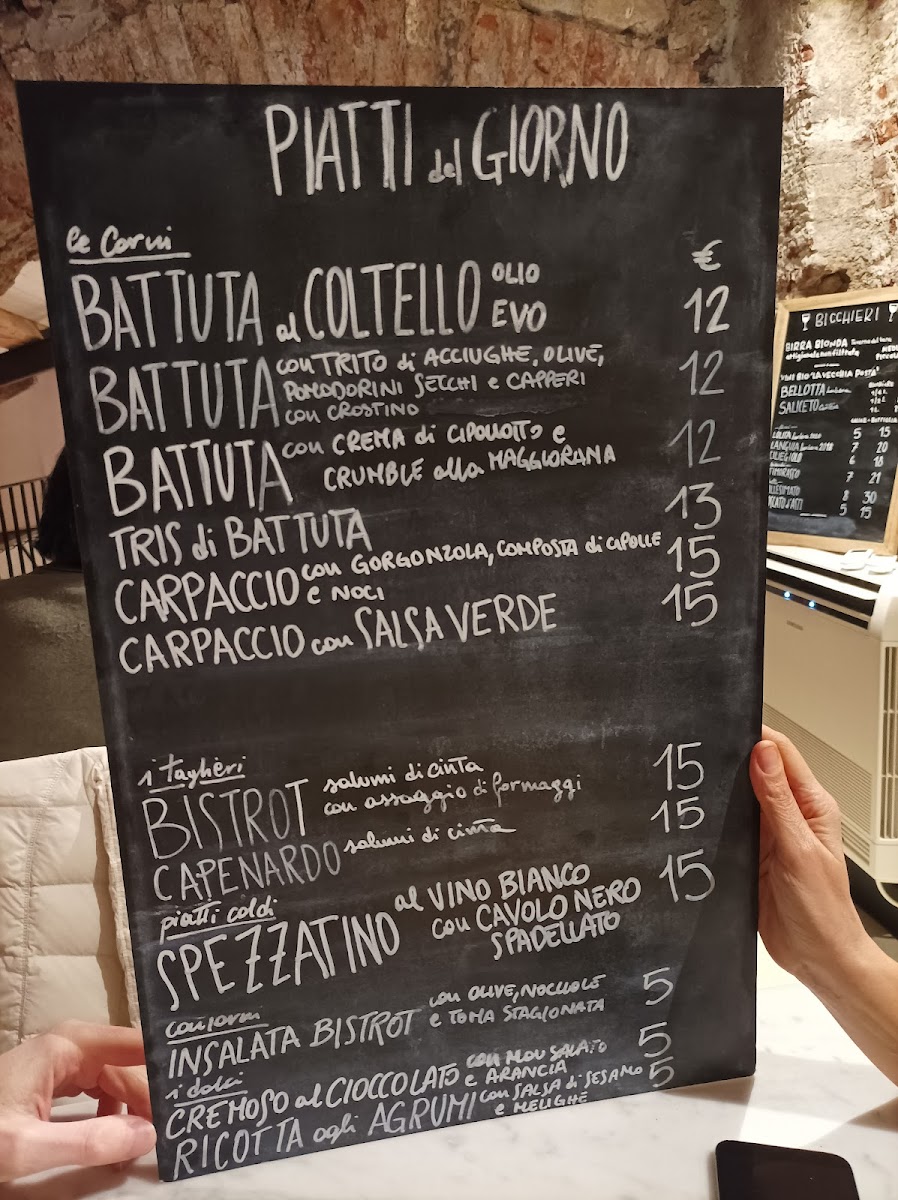 PIATTI del GIORNO
le Carni
€
BATTUTA al COLTELLO OLIO EVO 12
BATTUTA con TRITO di ACCIUGHE, OLIVE, 12
POMODORINI SECCHI e CAPPERI
con CROSTINO
BATTUTA con CREMA di CIPOLLOTTO e 12
CRUMBLE alla MAGGIORANA
TRIS di BATTUTA 13
CARPACCIO con GORGONZOLA, COMPOSTA di CIPOLLE 15
e NOCI
CARPACCIO con SALSA VERDE 15
i taglieri
BISTROT salumi di cinta 15
con assaggio di formaggi
CAPENARDO salumi di cinta 15
piatti caldi
SPEZZATINO al VINO BIANCO 15
con CAVOLO NERO
SPADELLATO
contorni
INSALATA BISTROT con OLIVE, NOCCIOLE 5
e TOMA STAGIONATA
i dolci
CREMOSO al CIOCCOLATO con MOU SALATO 5
e ARANCIA
RICOTTA agli AGRUMI con SALSA di SESAMO 5
e MELIGHE
BICCHIERI
BIRRA BIONDA
artigianale non filtrata
VINI BIO LA VECCHIA POSTA
BELLOTTA
SALICETO
5 15
7 20
CILIEGIOLO 6 18
TIMORASSO 7 21
8 30
5 15